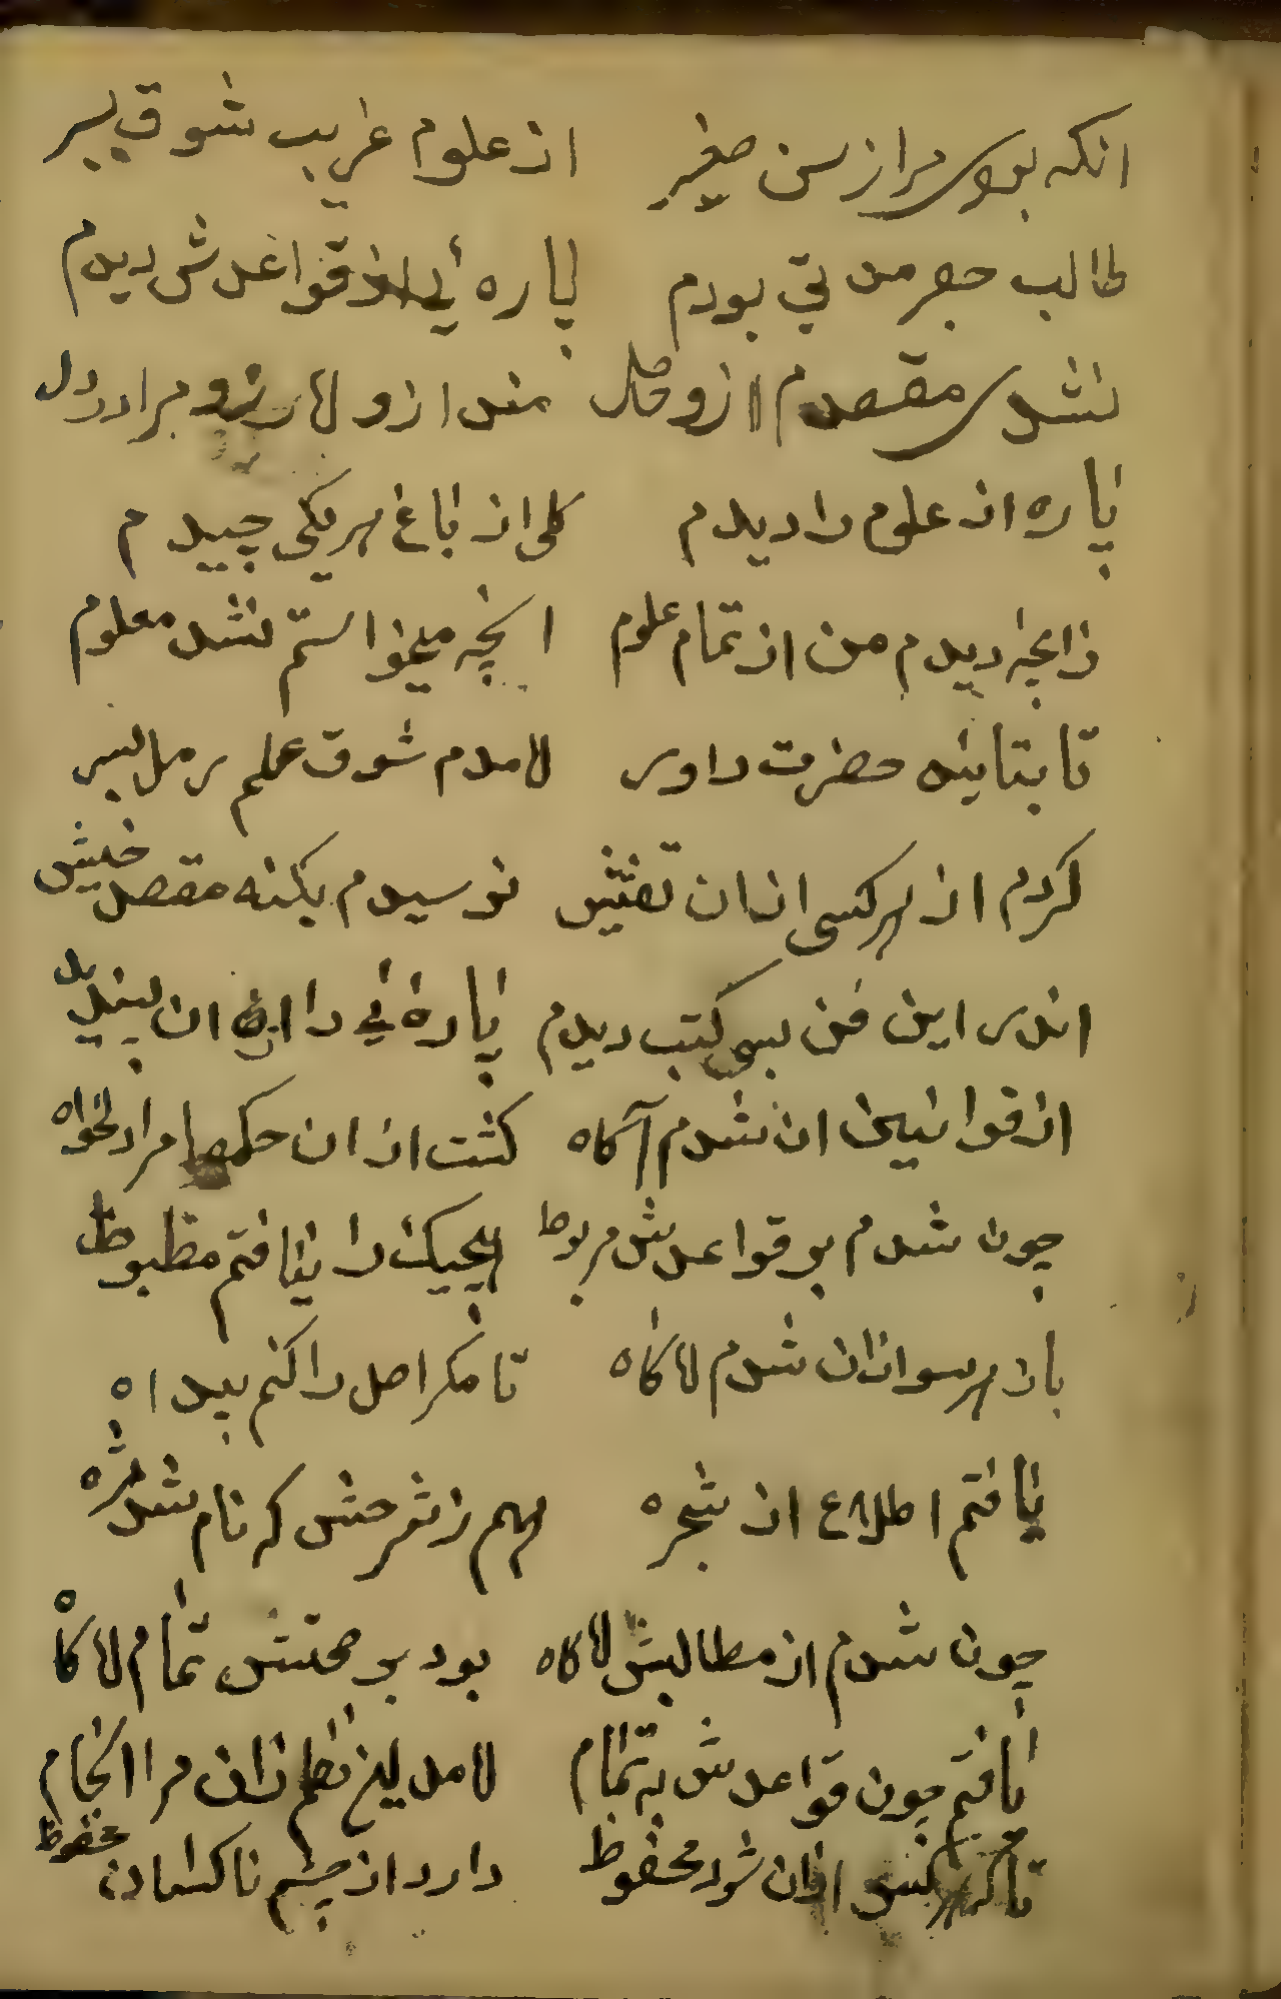 انکه بودی مرا ز سن صغیر از علوم غریب شوق بسر
طالب جفر مدتی بودم پاره ئی از قواعدش دیدم
نشدی مقصدم ازو حاصل مند ازو لارزو مرا در دل
پاره از علوم را دیدم کلی از باغ هریکی چیدم
زانچه دیدم من از تمام علوم انچه میخواستم نشد معلوم
تا بتایید حضرت داور لامدم شوق علم رمل بسر
کردم از هر کسی ازان تفتیش نرسیدم بکنه مقصد خیش
اندر این فن بسی کتب دیدم پاره ئی را ازان پسندیدم
از قوانین ان شدم آکاه کشت ازان حکمها مرا دلخواه
چون شدم بر قواعدش مربوط هیچیک را نیافتم مظبوط
باز هر سو ازان شدم لاکاه تا مکر اصل را کنم پیدا ه
یافتم اطلاع از شجره هم ز شرحش که نام شد ثمره
چون شدم از مطالبش لاکاه بود بر صحتش تمام لاکاه
یافتم چون قواعدش به تمام لامد این نظم زان مرا انجام
تا که هر کسی ازان شود محفوظ دارد از چشم ناکسان محفوظ